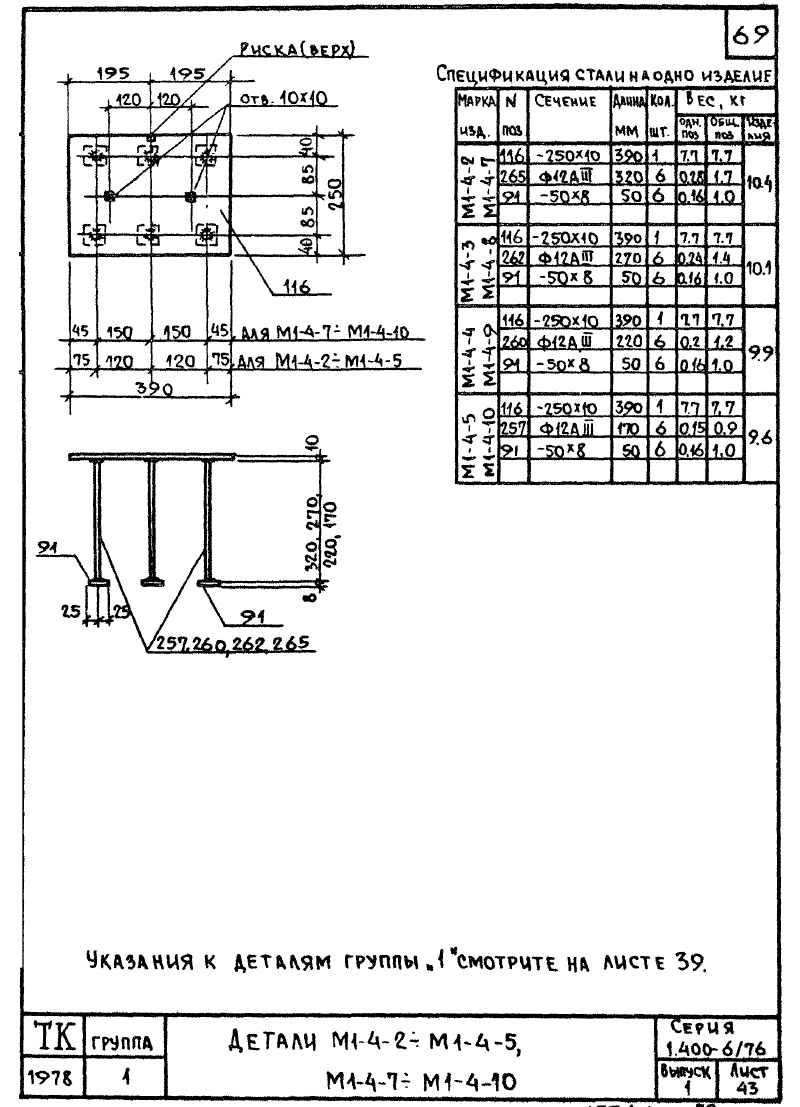 69
РИСКА (ВЕРХ)
195 195
120 120
ОТВ. 10×10
40
85
85
40
250
116
45 150 150 45 ДЛЯ М1-4-7÷ М1-4-10
75 120 120 75 ДЛЯ М1-4-2÷ М1-4-5
390
10
320, 270,
220, 170
8
91
25 25
91
257, 260, 262, 265
СПЕЦИФИКАЦИЯ СТАЛИ НА ОДНО ИЗДЕЛИЕ
МАРКА ИЗД. N ПОЗ СЕЧЕНИЕ ДЛИНА ММ КОЛ. ШТ. ВЕС, КГ
ОДН. ПОЗ ОБЩ. ПОЗ ИЗДЕЛИЯ
М1-4-2 М1-4-7
116 -250×10 390 1 7.7 7.7
265 Ф12АIII 320 6 0.28 1.7 10.4
91 -50×8 50 6 0.16 1.0
М1-4-3 М1-4-8
116 -250×10 390 1 7.7 7.7
262 Ф12АIII 270 6 0.24 1.4 10.1
91 -50×8 50 6 0.16 1.0
М1-4-4 М1-4-9
116 -250×10 390 1 7.7 7.7
260 Ф12АIII 220 6 0.2 1.2 9.9
91 -50×8 50 6 0.16 1.0
М1-4-5 М1-4-10
116 -250×10 390 1 7.7 7.7
257 Ф12АIII 170 6 0.15 0.9 9.6
91 -50×8 50 6 0.16 1.0
УКАЗАНИЯ К ДЕТАЛЯМ ГРУППЫ „1" СМОТРИТЕ НА ЛИСТЕ 39.
ТК
1978
ГРУППА
1
ДЕТАЛИ М1-4-2÷ М1-4-5,
М1-4-7÷ М1-4-10
СЕРИЯ
1.400-6/76
ВЫПУСК
1
ЛИСТ
43